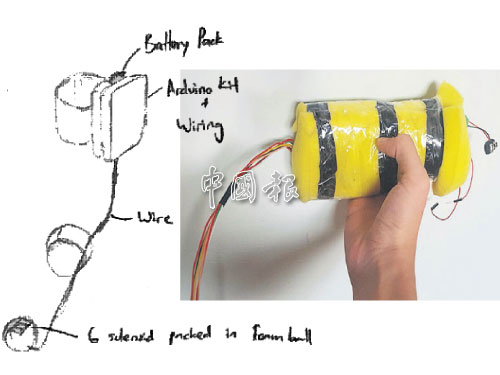 Battery Pack
Arduino Kit
+
Wiring
中國報
Wire
6 solenoid packed in Foam ball